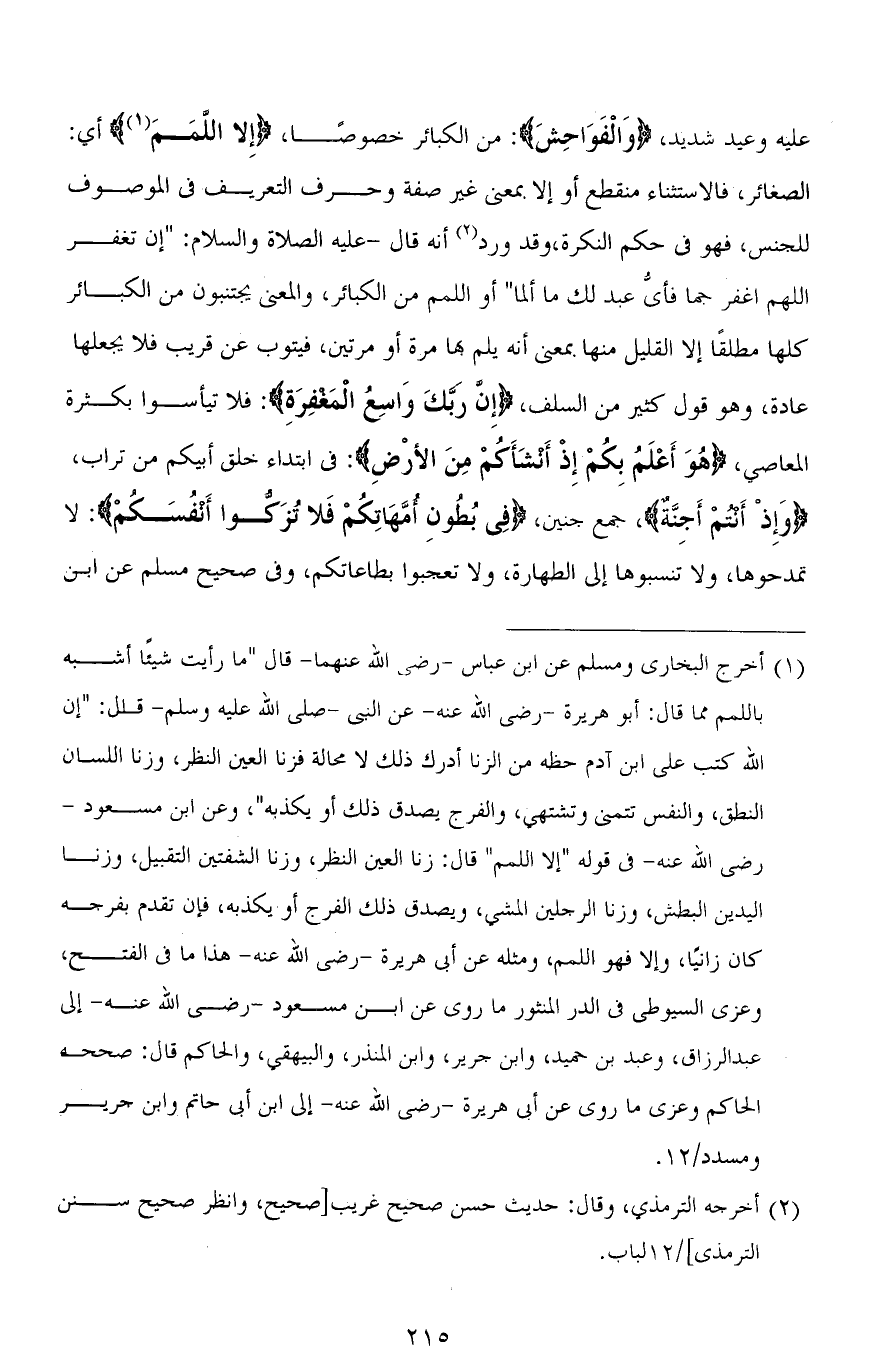 عليه وعيد شديد، ﴿وَالْفَوَاحِشَ﴾: من الكبائر خصوصًا، ﴿إِلا اللَّمَمَ(١)﴾ أي:
الصغائر، فالاستثناء منقطع أو إلا بمعنى غير صفة وحرف التعريف فى الموصوف
للجنس، فهو فى حكم النكرة،وقد ورد(٢) أنه قال -عليه الصلاة والسلام: "إن تغفر
اللهم اغفر جما فأىُّ عبد لك ما ألما" أو اللمم من الكبائر، والمعنى يجتنبون من الكبائر
كلها مطلقًا إلا القليل منها بمعنى أنه يلم بها مرة أو مرتين، فيتوب عن قريب فلا يجعلها
عادة، وهو قول كثير من السلف، ﴿إِنَّ رَبَّكَ وَاسِعُ الْمَغْفِرَةِ﴾: فلا تيأسوا بكثرة
المعاصي، ﴿هُوَ أَعْلَمُ بِكُمْ إِذْ أَنْشَأَكُمْ مِنَ الأَرْضِ﴾: فى ابتداء خلق أبيكم من تراب،
﴿وَإِذْ أَنْتُمْ أَجِنَّةٌ﴾، جمع جنين، ﴿فِي بُطُونِ أُمَّهَاتِكُمْ فَلا تُزَكُّوا أَنْفُسَكُمْ﴾: لا
تمدحوها، ولا تنسبوها إلى الطهارة، ولا تعجبوا بطاعاتكم، وفى صحيح مسلم عن ابن
(١) أخرج البخارى ومسلم عن ابن عباس -رضى الله عنهما- قال "ما رأيت شيئًا أشبه
باللمم مما قال: أبو هريرة -رضى الله عنه- عن النبى -صلى الله عليه وسلم- قلل: "إن
الله كتب على ابن آدم حظه من الزنا أدرك ذلك لا محالة فزنا العين النظر، وزنا اللسان
النطق، والنفس تتمنى وتشتهي، والفرج يصدق ذلك أو يكذبه"، وعن ابن مسعود -
رضى الله عنه- فى قوله "إلا اللمم" قال: زنا العين النظر، وزنا الشفتين التقبيل، وزنا
اليدين البطش، وزنا الرجلين المشي، ويصدق ذلك الفرج أو يكذبه، فإن تقدم بفرجه
كان زانيًا، وإلا فهو اللمم، ومثله عن أبى هريرة -رضى الله عنه- هذا ما فى الفتح،
وعزى السيوطى فى الدر المنثور ما روى عن ابن مسعود -رضى الله عنه- إلى
عبدالرزاق، وعبد بن حميد، وابن جرير، وابن المنذر، والبيهقي، والحاكم قال: صححه
الحاكم وعزى ما روى عن أبى هريرة -رضى الله عنه- إلى ابن أبى حاتم وابن جرير
ومسدد/١٢.
(٢) أخرجه الترمذي، وقال: حديث حسن صحيح غريب[صحيح، وانظر صحيح سنن
الترمذى]/١٢لباب.
٢١٥